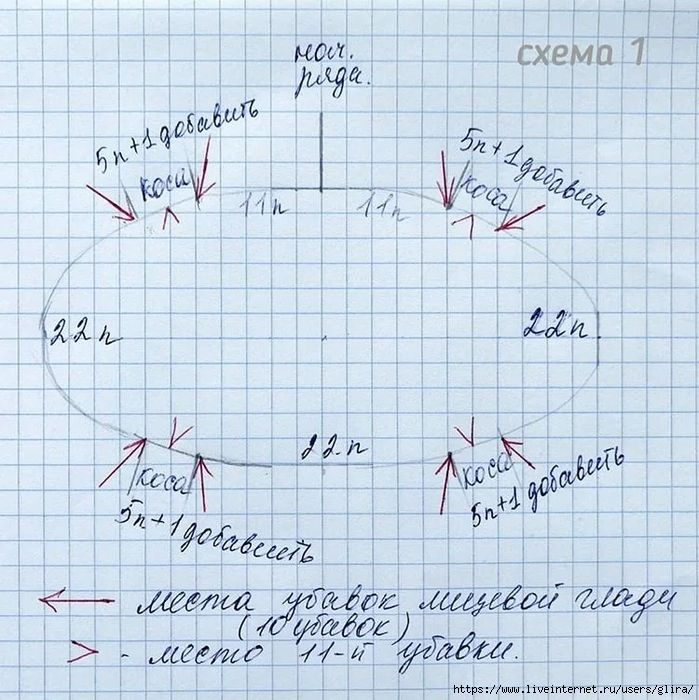 схема 1
нач.
ряда.
5п+1 добавить
коса
5п+1 добавить
коса
11п
11п
22п
22п
22п
коса
5п+1 добавить
коса
5п+1 добавить
места убавок лицевой глади
(10 убавок)
- место 11-й убавки.
https://www.liveinternet.ru/users/glira/